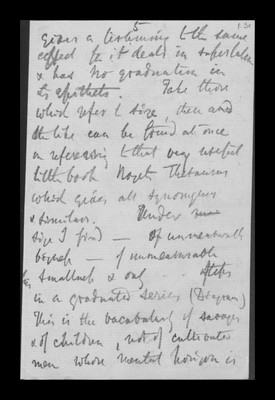 5
gives a testimony to the same
effect for it deals in superlatives
& has no graduation in
its epithets. Take those
which refer to size, there and
the like can be found at once
on referring to that very useful
little book Rogets Thesaurus
which gives all synonyms
& similars. Under
size I find — of unmeasurable
bigness — of unmeasurable
smallness & only steps
in a graduated series (Diagram)
This is the vocabulary of savages
& of children, not of cultivated
men whose mental horizon is